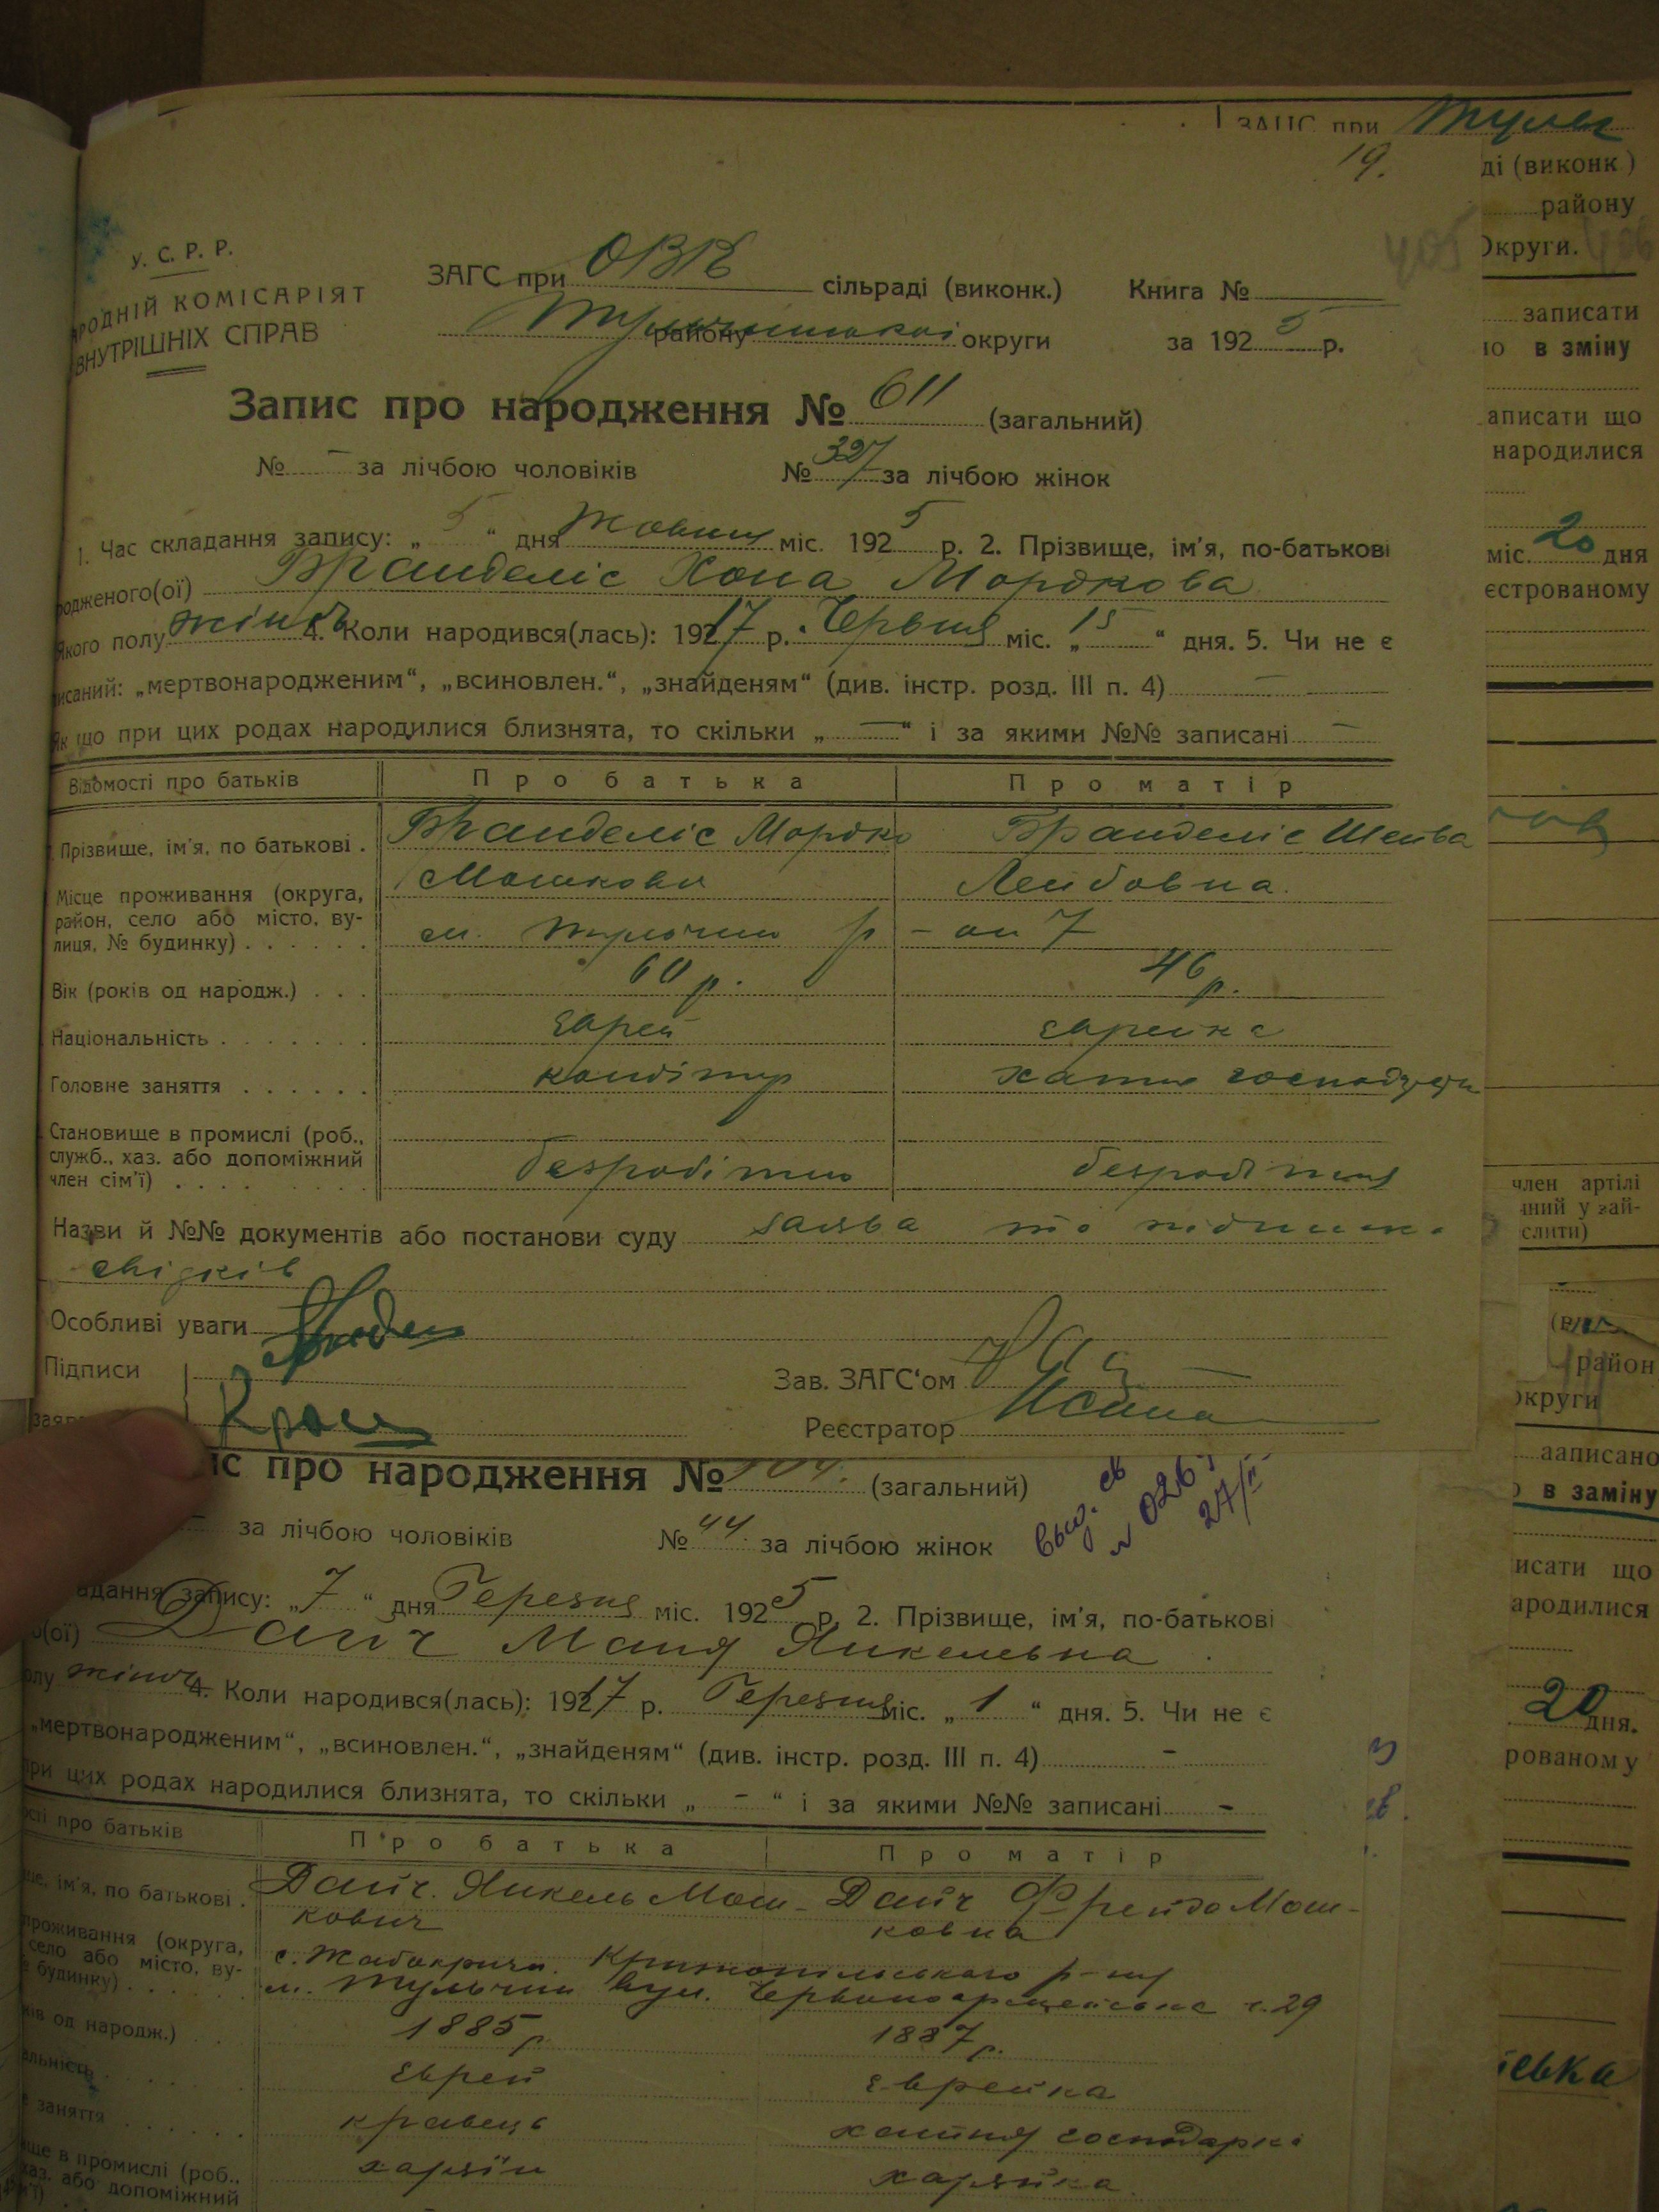 ЗАГС при
19.
ді (виконк.)
району
Округи.
405
У. С. Р. Р.
РОДНІЙ КОМІСАРІЯТ
ВНУТРІШНІХ СПРАВ
ЗАГС при ОВК сільраді (виконк.) Книга №
району Тульчинської округи за 1925 р.
Запис про народження № 611 (загальний)
№ - за лічбою чоловіків № 327 за лічбою жінок
1. Час складання запису: „5“ дня Жовтня міс. 1925 р. 2. Прізвище, ім'я, по-батькові
родженого(ої) Бранделіс Хона Мордкова
Якого полу жіноч 4. Коли народився(лась): 19217 р. Червня міс. „15“ дня. 5. Чи не є
писаний: „мертвонародженим“, „всиновлен.“, „знайденям“ (див. інстр. розд. III п. 4) —
Як що при цих родах народилися близнята, то скільки „—“ і за якими №№ записані —
Відомості про батьків Про батька Про матір
Прізвище, ім'я, по батькові . Бранделіс Мордко Бранделіс Шейва
Мошкови Лейбовна
Місце проживання (округа,
район, село або місто, ву-
лиця, № будинку) . . . . . . м. Тульчин р-он 7
Вік (років од народж.) . . . 60 р. 46 р.
Національність . . . . . . . Єврей єврейка
Головне заняття . . . . . . кондітер хатня господарка
Становище в промислі (роб.,
служб., хаз. або допоміжний
член сім'ї) . . . . безробітни безробітня
Назви й №№ документів або постанови суду заява та підписк.
свідків
Особливі уваги
Підписи Зав. ЗАГС'ом
Реєстратор
записати
ю в зміну
аписати що
народилися
міс. 20 дня
єстрованому
член артілі
слити)
район
округи
ис про народження № (загальний)
за лічбою чоловіків № 44. за лічбою жінок
выд. св
№ 026
27/
адання запису: „7“ дня Березня міс. 1925 р. 2. Прізвище, ім'я, по-батькові
о(ої) Дайч Маня Янкелевна
олу жіноч 4. Коли народився(лась): 19217 р. Березня міс. „1“ дня. 5. Чи не є
„мертвонародженим“, „всиновлен.“, „знайденям“ (див. інстр. розд. III п. 4) -
при цих родах народилися близнята, то скільки „-“ і за якими №№ записані -
ості про батьків Про батька Про матір
ще, ім'я, по батькові . Дайч Янкель Мош- Дайч Фрейда Мош-
кович ковна
проживання (округа,
село або місто, ву-
будинку) . . . . . с. Жабокричи Крижопільського р-ну
м. Тульчин вул. Червоноармейська ч. 29
ків од народж.) . . 1885 р. 1887 р.
альність . . . . . Єврей єврейка
заняття . . . . . кравець хатня господарка
ще в промислі (роб.,
хаз. або допоміжний хазяїн хазяйка
ааписано
в заміну
исати що
ародилися
20 дня.
рованому